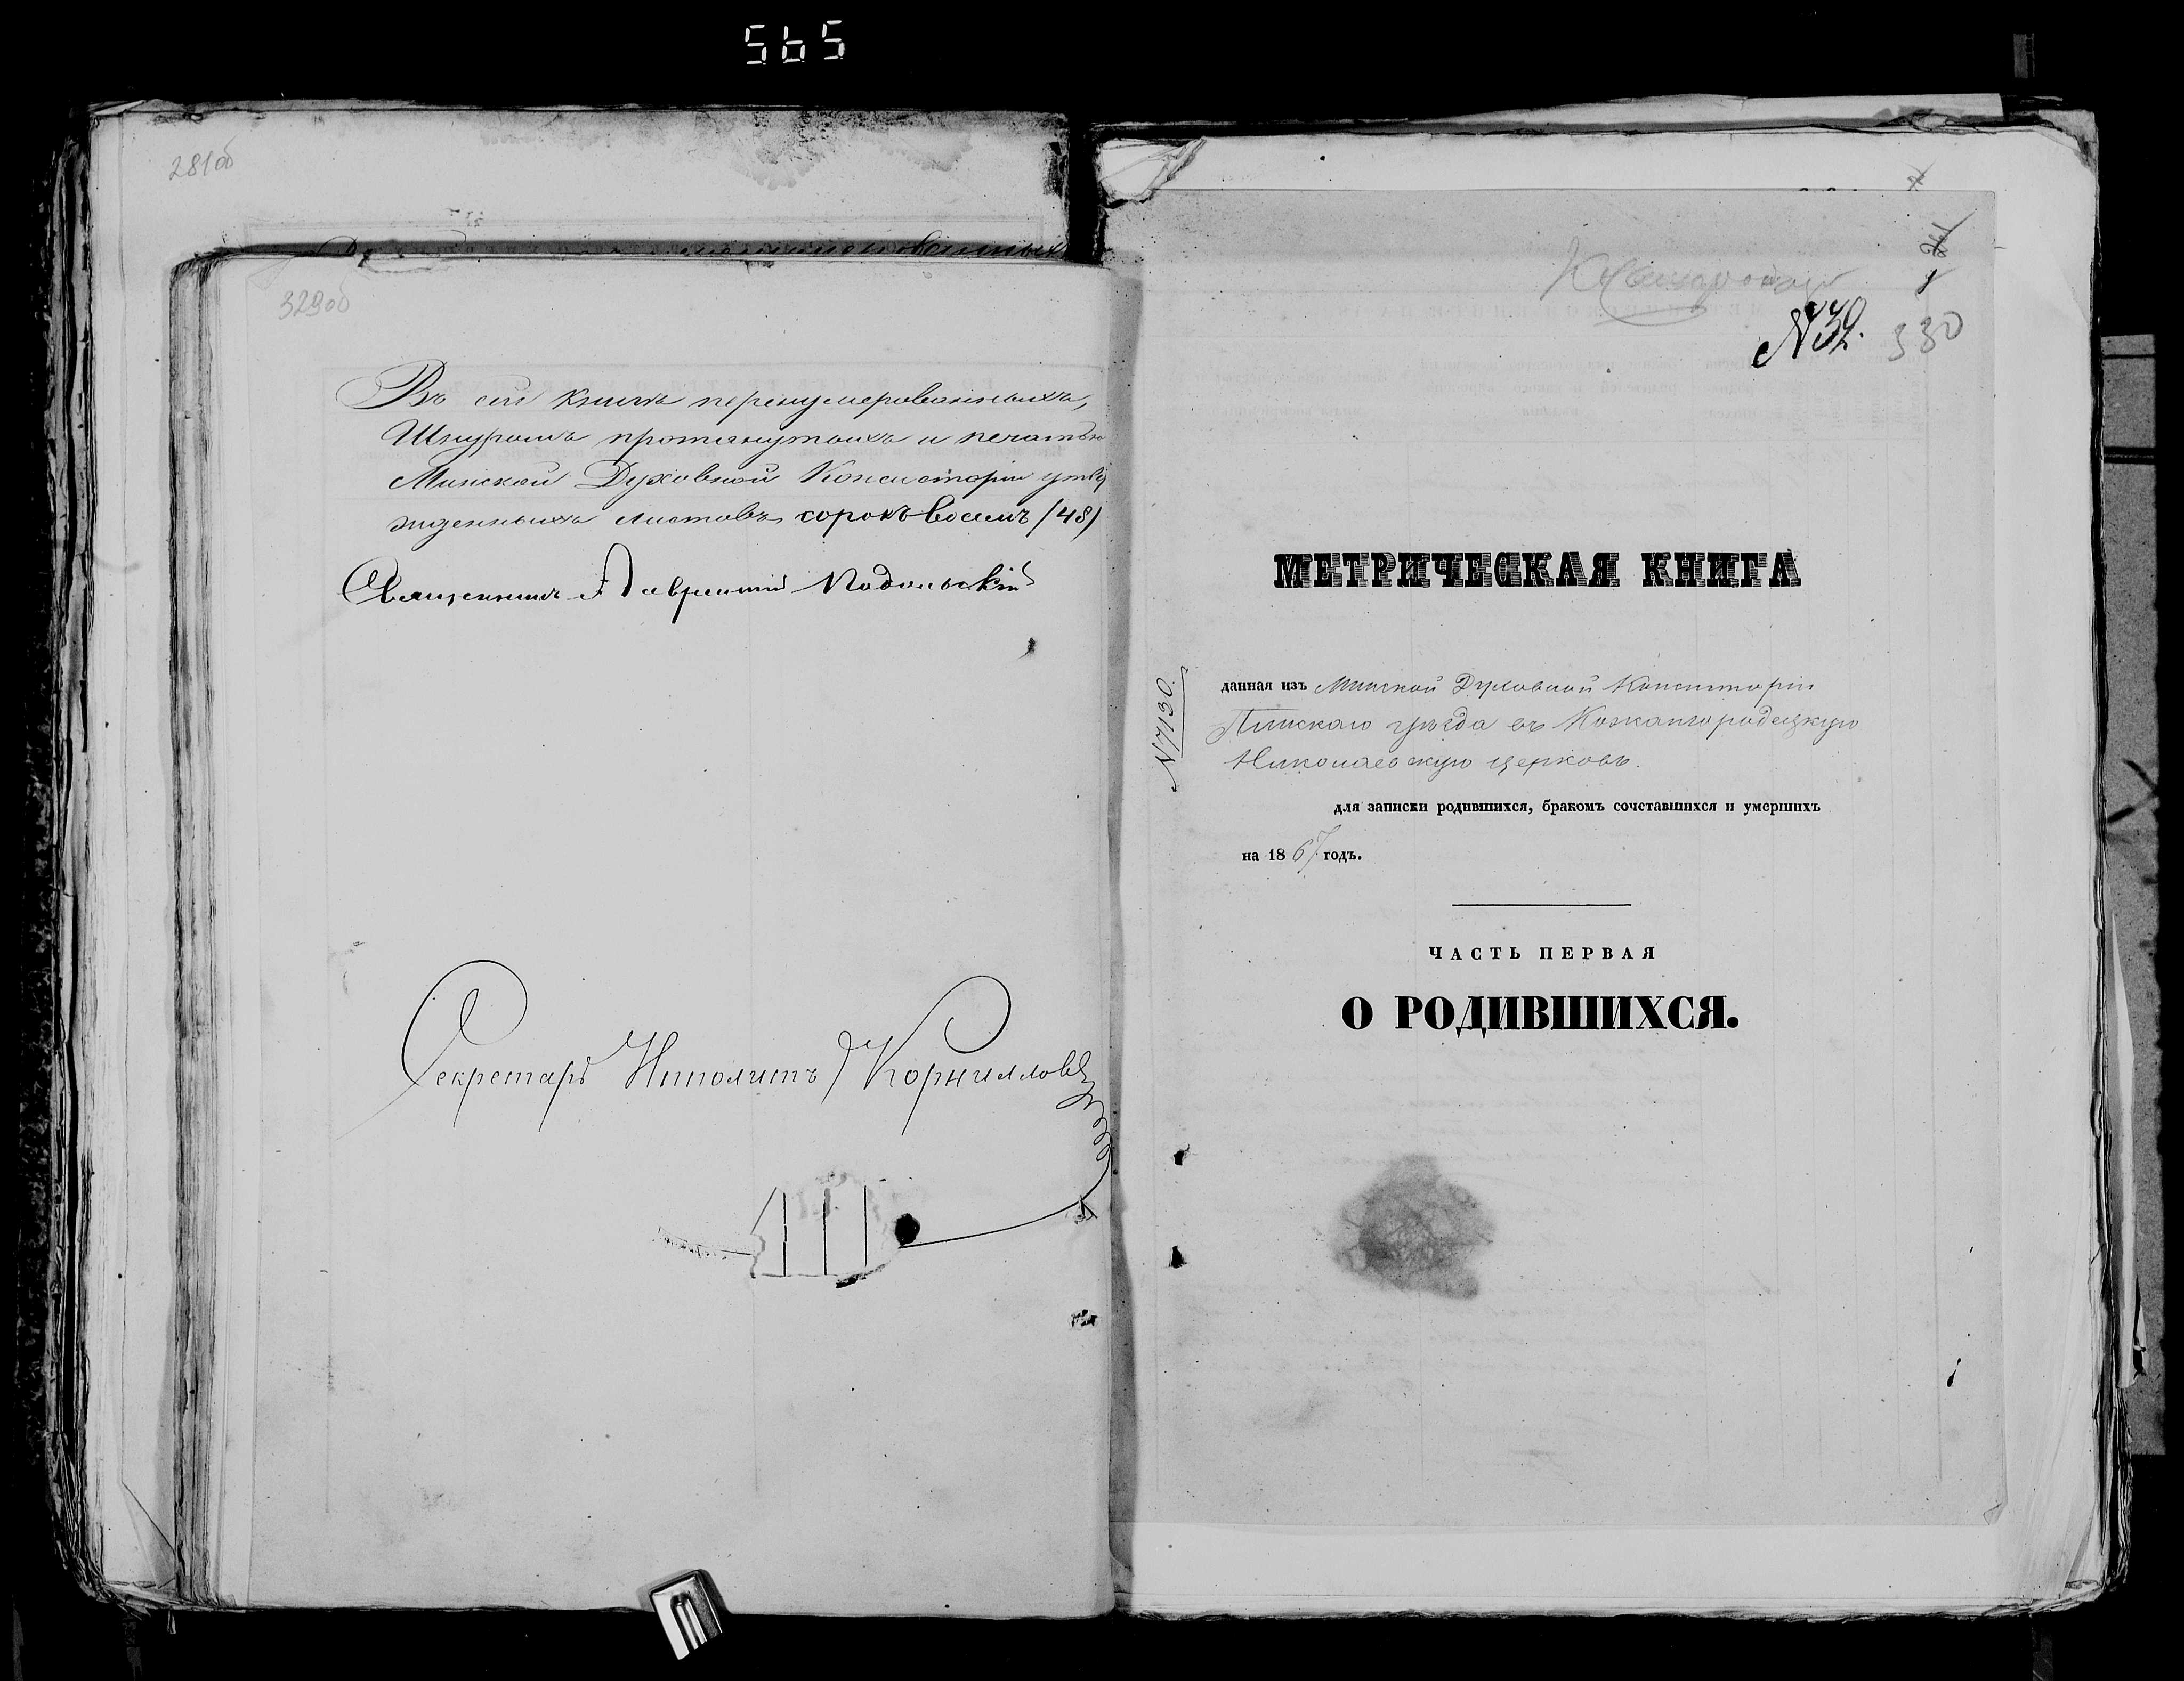 565
281об
329об
Въ сей книгѣ перенумерованныхъ,
Шнуромъ протянутыхъ и печатью
Минской Духовной Консисторіи утвер
жденныхъ листовъ сорокъ восемъ (48)
Священникъ Лаврентій Подольскій
Секретарь Ипполитъ Корниловъ
N 39.
330
МЕТРИЧЕСКАЯ КНИГА
N 7130.
данная изъ Минской Духовной Консисторіи
Пинскаго уѣзда въ Кожангородецкую
Николаевскую церковь.
для записки родившихся, бракомъ сочставшихся и умершихъ
на 1867 годъ.
ЧАСТЬ ПЕРВАЯ
О РОДИВШИХСЯ.